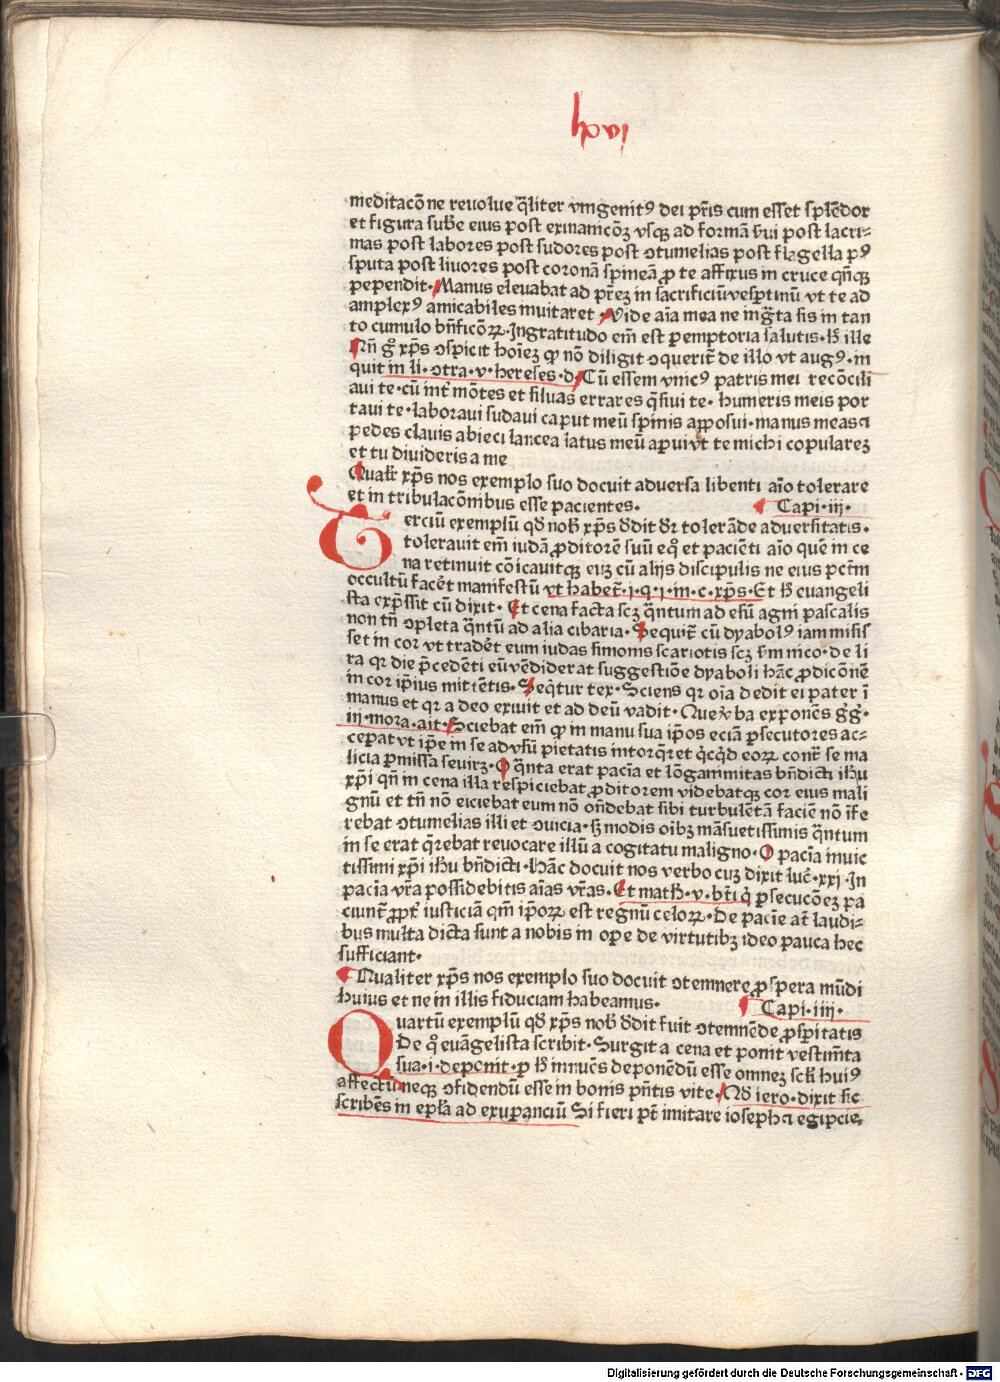 meditacōne reuolue q̄liter vnigenitꝰ dei pr̄is cum esset splēdor
et figura sub̄e eius post exinanicōꝫ vsqꝫ ad formā s̄ui post lacri-
mas post labores post sudores post ↄtumelias post flagella pꝰ
sputa post liuores post coronā spineā ꝓ te affixus in cruce qn̄qꝫ
pependit· Manus eleuabat ad pr̄eꝫ in sacrificiū vesꝑtinū vt te ad
amplexꝰ amicabiles inuitaret · Vide aīa mea ne ingͣta sis in tan
to cumulo bn̄ficōꝝ·Ingratitudo em̄ est ꝑemptoria salutis· H̄ ille
Nn̄ gͦ xp̄s ↄspicit hoīeꝫ ꝙ nō diligit ↄquerit̄ de illo vt augꝰ· in
quit in li· ↄtra·v·hereses·d· Cū essem vnicꝰ patris mei recōcili
aui te·cū int̄ mōtes et siluas errares q̄siui te· humeris meis por
taui te·laboraui sudaui caput meū spinis apposui·manus meas ⁊
pedes clauis abieci lancea latus meū aꝑui vt te michi copulareꝫ
et tu diuideris a me
Qualr̄ xp̄s nos exemplo suo docuit aduersa libenti aīo tolerare
et in tribulacōnibus esse pacientes· Capi·iij·
Terciū exemplū qđ nob̄ xp̄s ddit dr̄ tolerāde aduersitatis·
tolerauit em̄ iudā ꝓditorē suū eqͦ et paciēti aīo quē in ce
na retinuit cōicauitqꝫ eiꝫ cū alijs discipulis ne eius pctm̄
occultū facēt manifestū vt habet̄·i·q·i·in·c·xp̄s· Et h̄ euangeli
sta exp̄ssit cū dixit· Et cena facta scꝫ q̄ntum ad esū agni pascalis
non tn̄ ↄpleta q̄ntū ad alia cibaria· Sequit̄ cū dyabolꝰ iam misis
set in cor vt tradēt eum iudas simonis scariotis scꝫ s̄m nico·de li
ra qr die p̄cedēti eū vēdiderat suggestiōe dyaboli hāc ꝓdicōnē
in cor ip̄ius mittētis· Seq̄tur tex·Sciens qr oīa dedit ei pater ī
manus et qr a deo exiuit et ad deū vadit· Que v̄ba exponēs gͦgͦ·
iij·mora·ait· Sciebat em̄ ꝙ in manu sua ip̄os eciā ꝑsecutores ac-
ceꝑat vt ip̄e in se adv̄sū pietatis intorq̄ret qͥcqͥd eoꝝ cont̄ se ma
licia ꝑmissa seuirꝫ· O q̄nta erat pacīa et lōgamitas bn̄dicti ih̄u
xp̄i qn̄ in cena illa respiciebat ꝓditorem videbatqꝫ cor eius mali
gnū et tn̄ nō eiciebat eum nō on̄debat sibi turbulētā faciē nō īfe
rebat ↄtumelias illi et ↄuicia·sꝫ modis oibꝫ māsuetissimis q̄ntum
in se erat q̄rebat reuocare illū a cogitatu maligno· O pacīa inuic
tissimi xp̄i ih̄u bn̄dicti·Hāc docuit nos verbo cuꝫ dixit luc̄·xxi·In
pacīa vr̄a possidebitis aīas vr̄as· Et math̄·v·bt̄i qͥ ꝑsecucōeꝫ pa
ciunt̄ ꝓpt̄ iusticiā qm̄ ip̄oꝝ est regnū celoꝝ·De pacīe at̄ laudi-
bus multa dicta sunt a nobis in oꝑe de virtutibꝫ ideo pauca hec
sufficiant·
Qualiter xp̄s nos exemplo suo docuit ↄtemnere ꝓspera mūdi
huius et ne in illis fiduciam habeamus· Capi·iiij·
Quartū exemplū qđ xp̄s nob̄ ddit fuit ↄtemnēde ꝓsꝑitatis
De qͦ euāgelista scribit·Surgit a cena et ponit vestim̄ta
sua·i·deponit·ꝑ h̄ innuēs deponēdū esse omneꝫ scl̄i huiꝰ
affectū neqꝫ ↄfidendū esse in bonis pn̄tis vite· Ađ iero·dixit sic
scribēs in epl̄a ad exuꝑanciū Si fieri pt̄ imitare ioseph ⁊ egipcie
Digitalisierung gefördert durch die Deutsche Forschungsgemeinschaft - DFG